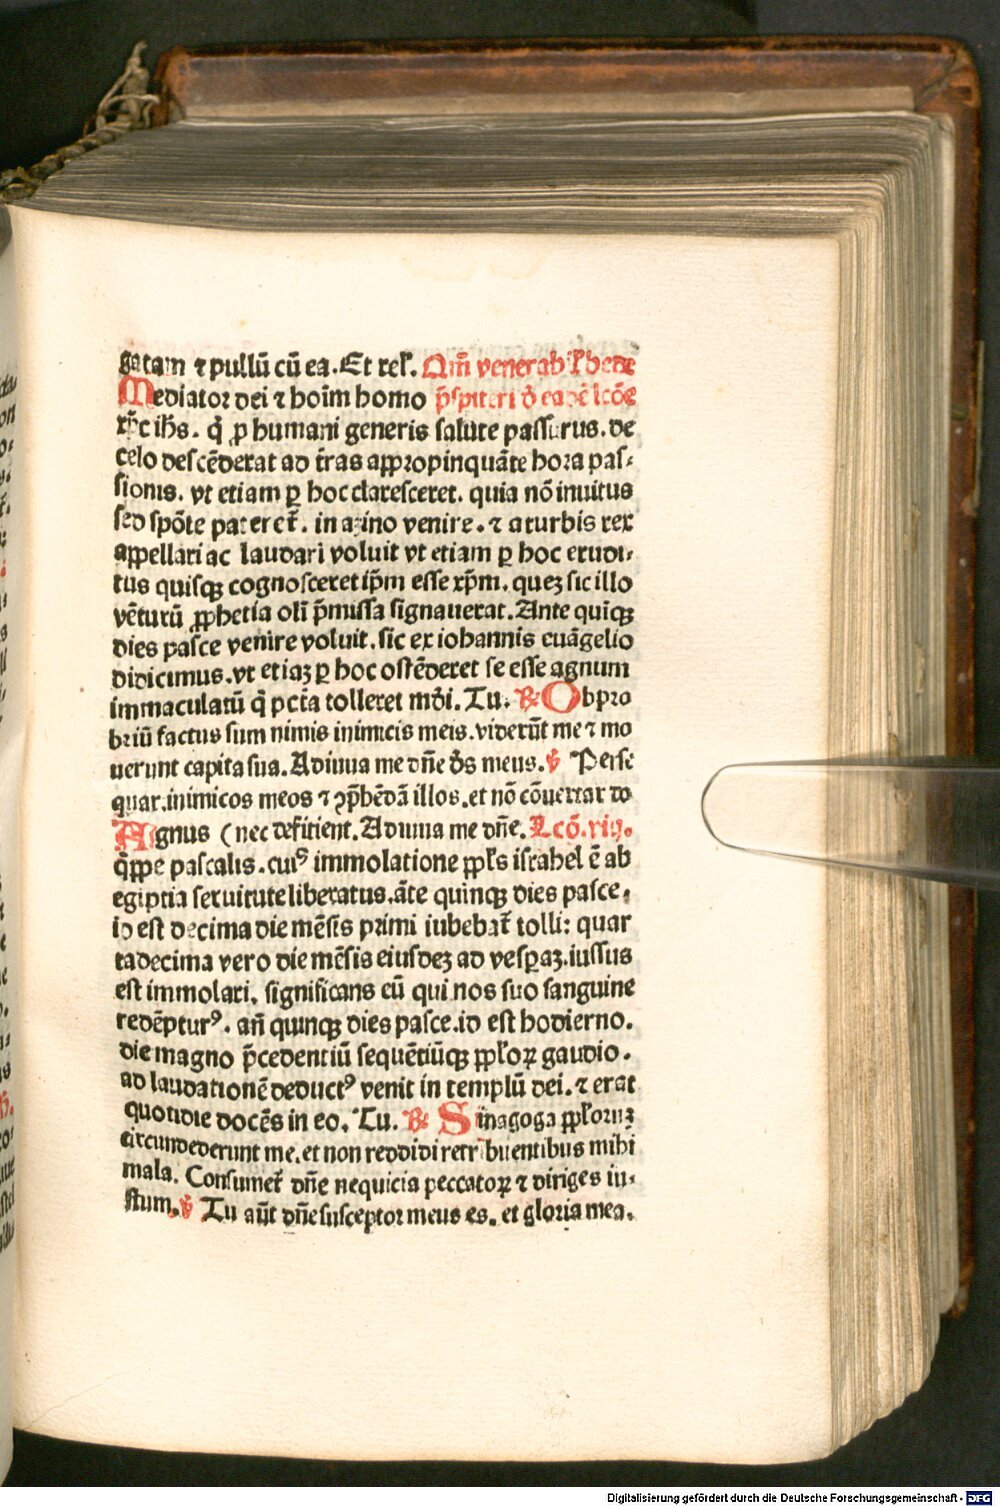 gatam ⁊ pullū cū ea. Et rel̄. Om̄ venerabil̄ bede
Mediator dei ⁊ hoīm homo p̄spiteri d̄ eadē lcōe
xp̄c ih̄s. q̄ ꝓ humani generis salute passurus. de
celo descēderat ad t̄ras appropinquāte hora pas⸗
sionis. vt etiam ꝑ hoc claresceret. quia nō inuitus
sed spōte pateret̄. in azino venire. ⁊ a turbis rex
appellari ac laudari voluit vt etiam ꝑ hoc erudi⸗
tus quisqꝫ cognosceret ip̄m esse xp̄m. quez sic illo
vēturū ꝓphetia oli p̄missa signauerat. Ante quīqꝫ
dies pasce venire voluit. sic ex iohannis euāgelio
didicimus. vt etiaz ꝑ hoc ostēderet se esse agnum
immaculatū q̄ pctā tolleret mūdi. Tu. ℟ Obpro
briū factus sum nimis inimicis meis. viderūt me ⁊ mo
uerunt capita sua. Adiuua me dn̄e d̄s meus. ℣ Perse
quar inimicos meos ⁊ ꝯp̄hēdā illos. et nō cōuertar do
Agnus ( nec defitient. Adiuua me dn̄e. Lcō. viij.
q̄ppe pascalis. cuiꝰ immolatione ꝓpl̄s israhel ē ab
egiptia seruitute liberatus. āte quinqꝫ dies pasce.
id est decima die mēsis primi iubebat̄ tolli: quar
tadecima vero die mēsis eiusdeꝫ ad vesꝑaꝫ. iussus
est immolari. significans eū qui nos suo sanguine
redēpturꝰ. an̄ quinqꝫ dies pasce. id est hodierno.
die magno p̄cedentiū sequētiūqꝫ ꝓploꝛ gaudio.
ad laudationē deductꝰ venit in templū dei. ⁊ erat
quotidie docēs in eo. Tu. ℟ Sinagoga ꝓploruꝫ
circundederunt me. et non reddidi retribuentibus mihi
mala. Consumet̄ dn̄e nequicia peccatoꝛ ⁊ diriges iu⸗
stum. ℣ Tu aūt dn̄e susceptor meus es. et gloria mea.
Digitalisierung gefördert durch die Deutsche Forschungsgemeinschaft - DFG